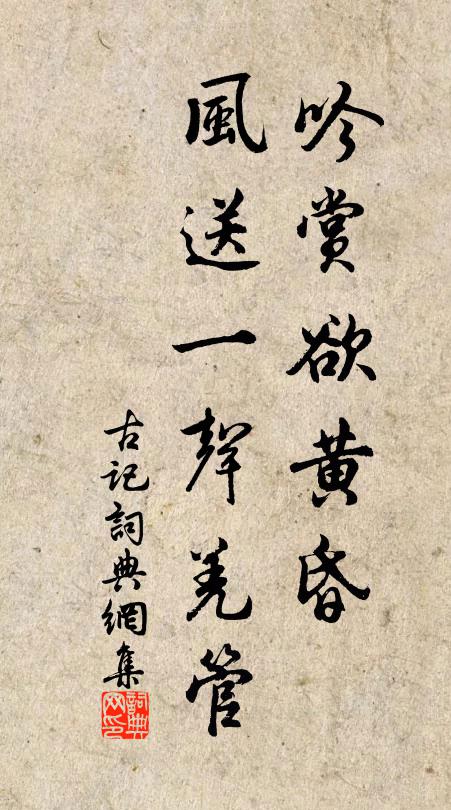 吟賞欲黄昏
風送一聲羌管
古記詞典網集
詞典网印